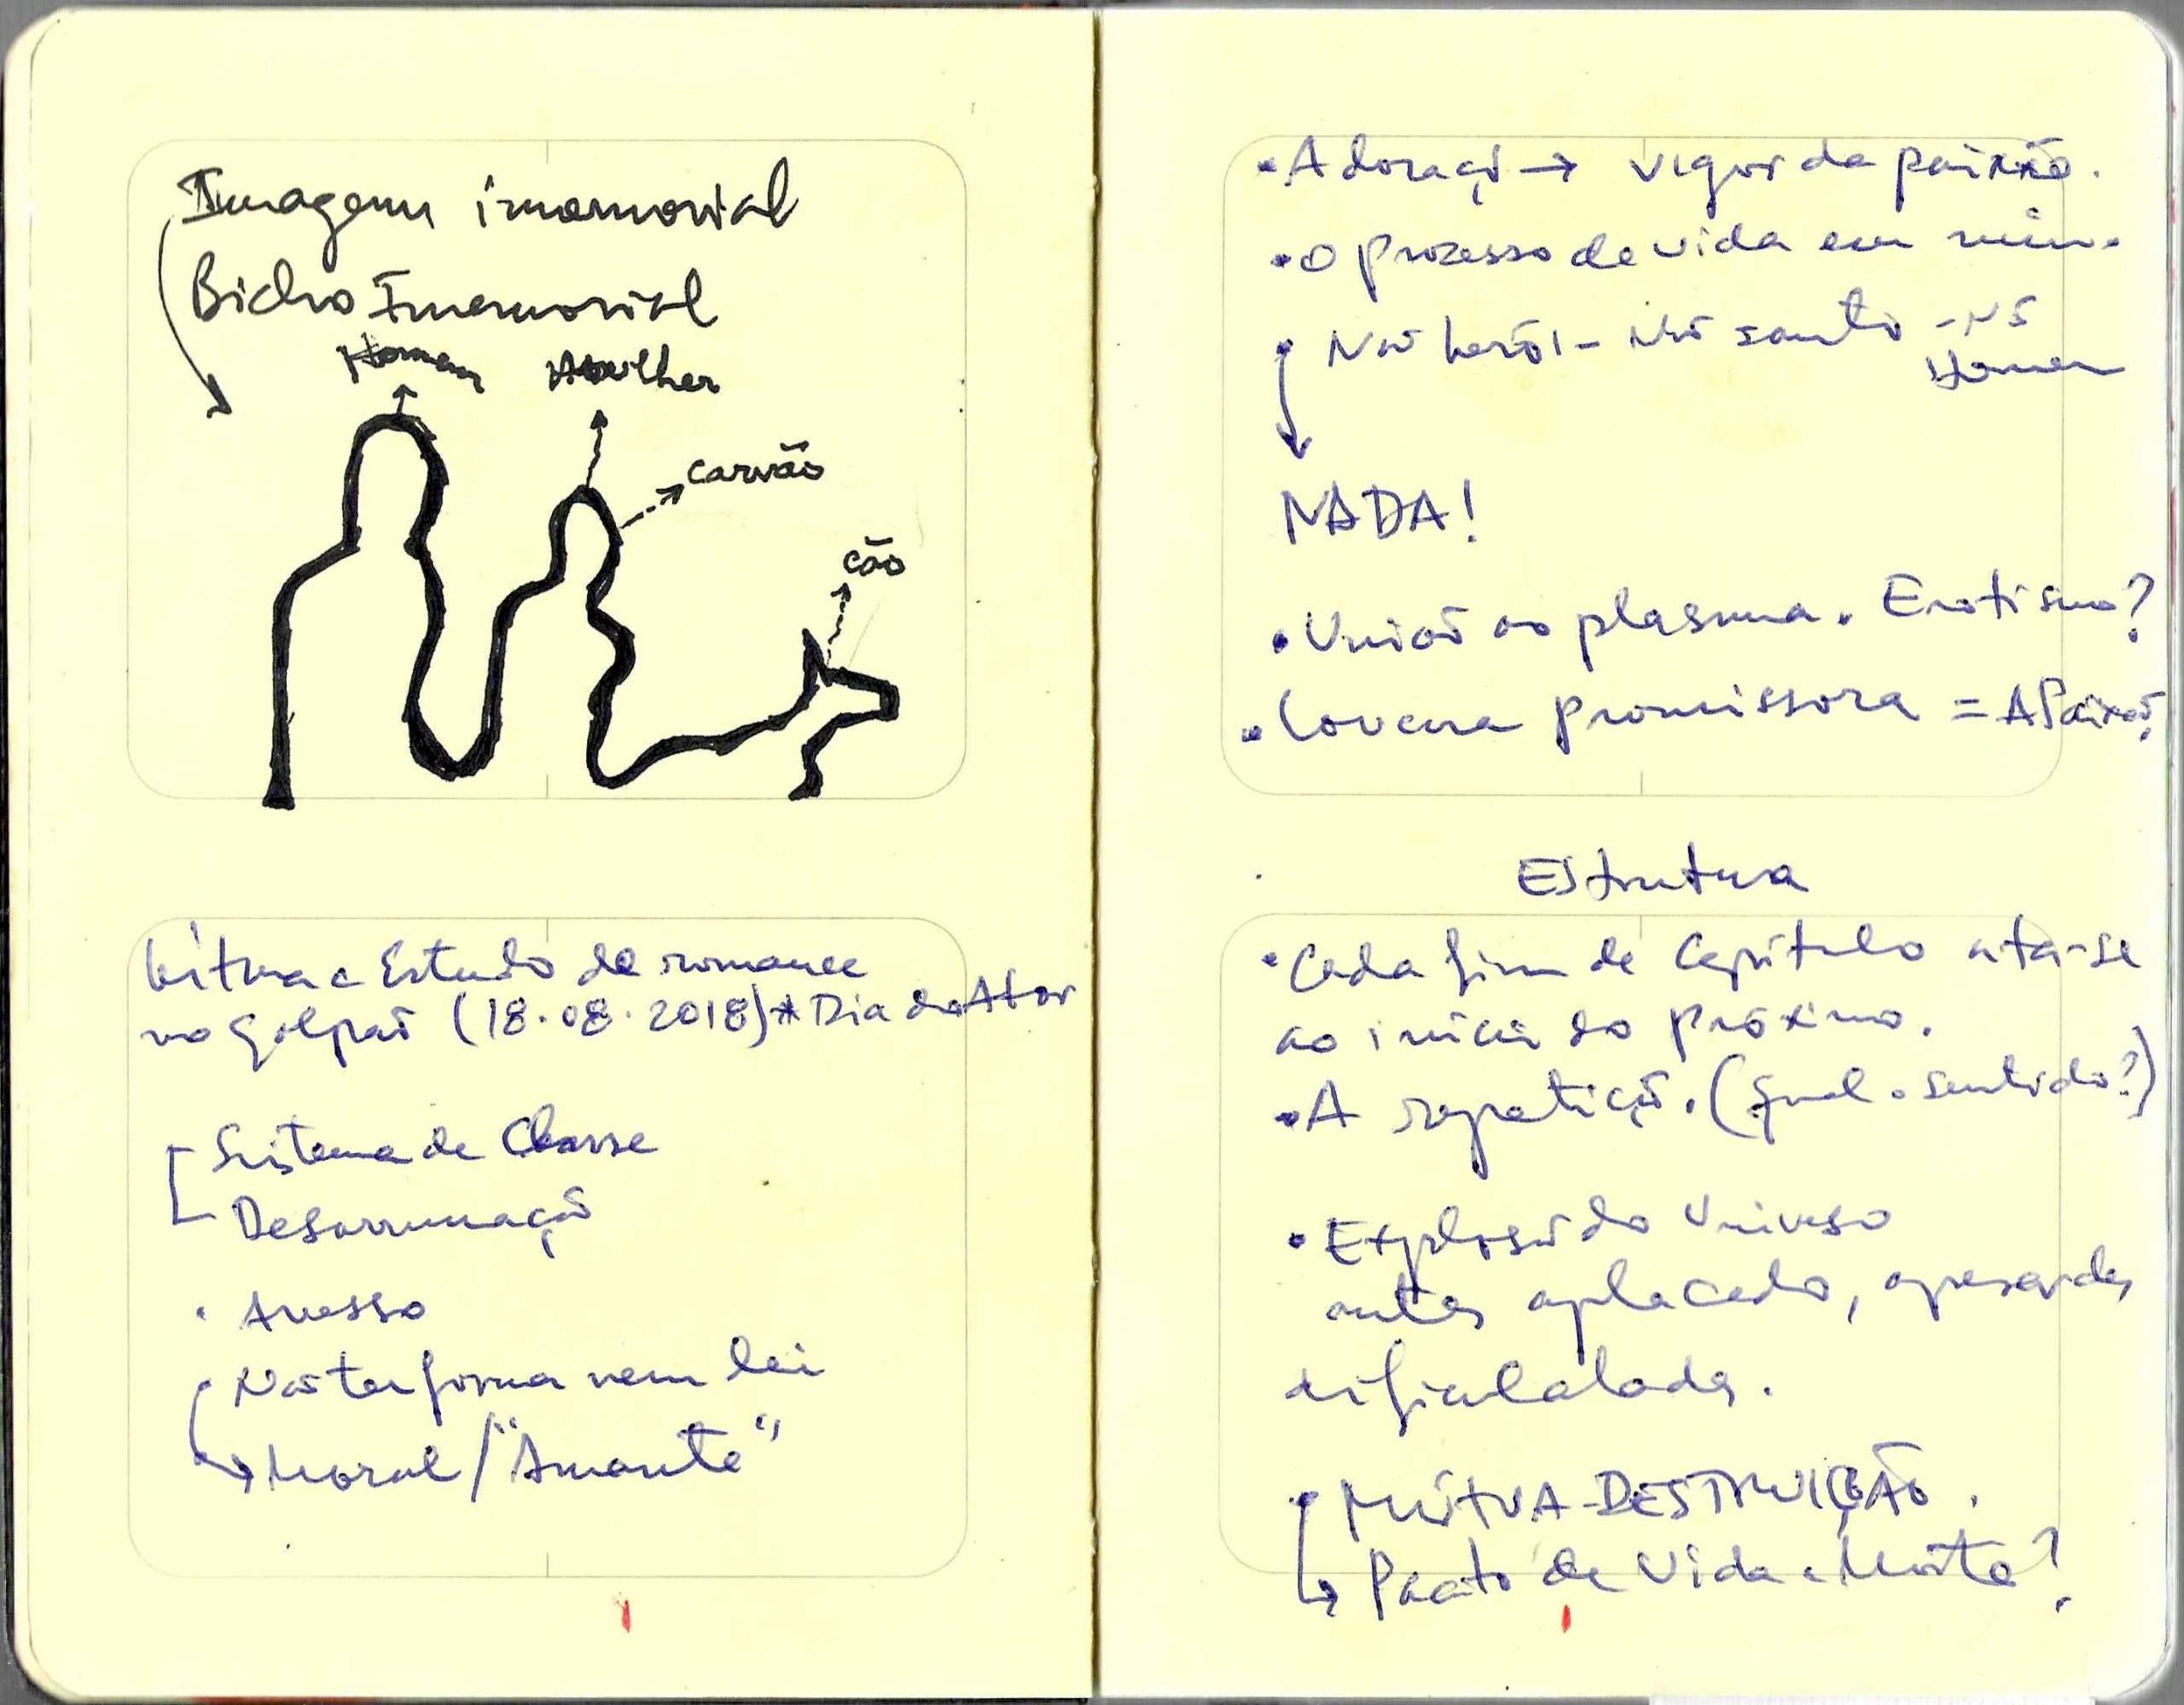 Imagem imemorial
Bicho Imemorial
Homem
Mulher
carvão
cão
Leitura e Estudo do romance
no galpão (18.08.2018)* Dia do Ator
Sistema de Classe
Desarrumação
• Avesso
Não ter forma nem lei
Moral / "Amante"
• Adoração → vigor da paixão.
• O processo de vida em mim.
• Não herói - Não santo - Nó
Homem
NADA!
• União ao plasma. Erotismo?
• Loucura promissora = A Paixão?
Estrutura
• Cada fim de Capítulo ata-se
ao início do próximo.
• A repetição. (Qual o sentido?)
• Explosão do Universo
antes aplacado,
• MÚTUA-DESTRUIÇÃO.
Pacto de Vida e Morte?